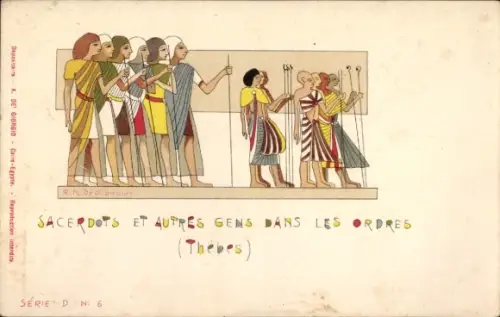 Dépositaire A. DE' GIORGIO - Caire-Egypte. - Reproduction interdite.
SACERDOTS ET AUTRES GENS DANS LES ORDRES
(Thèbes)
SÉRIE D Nº 6